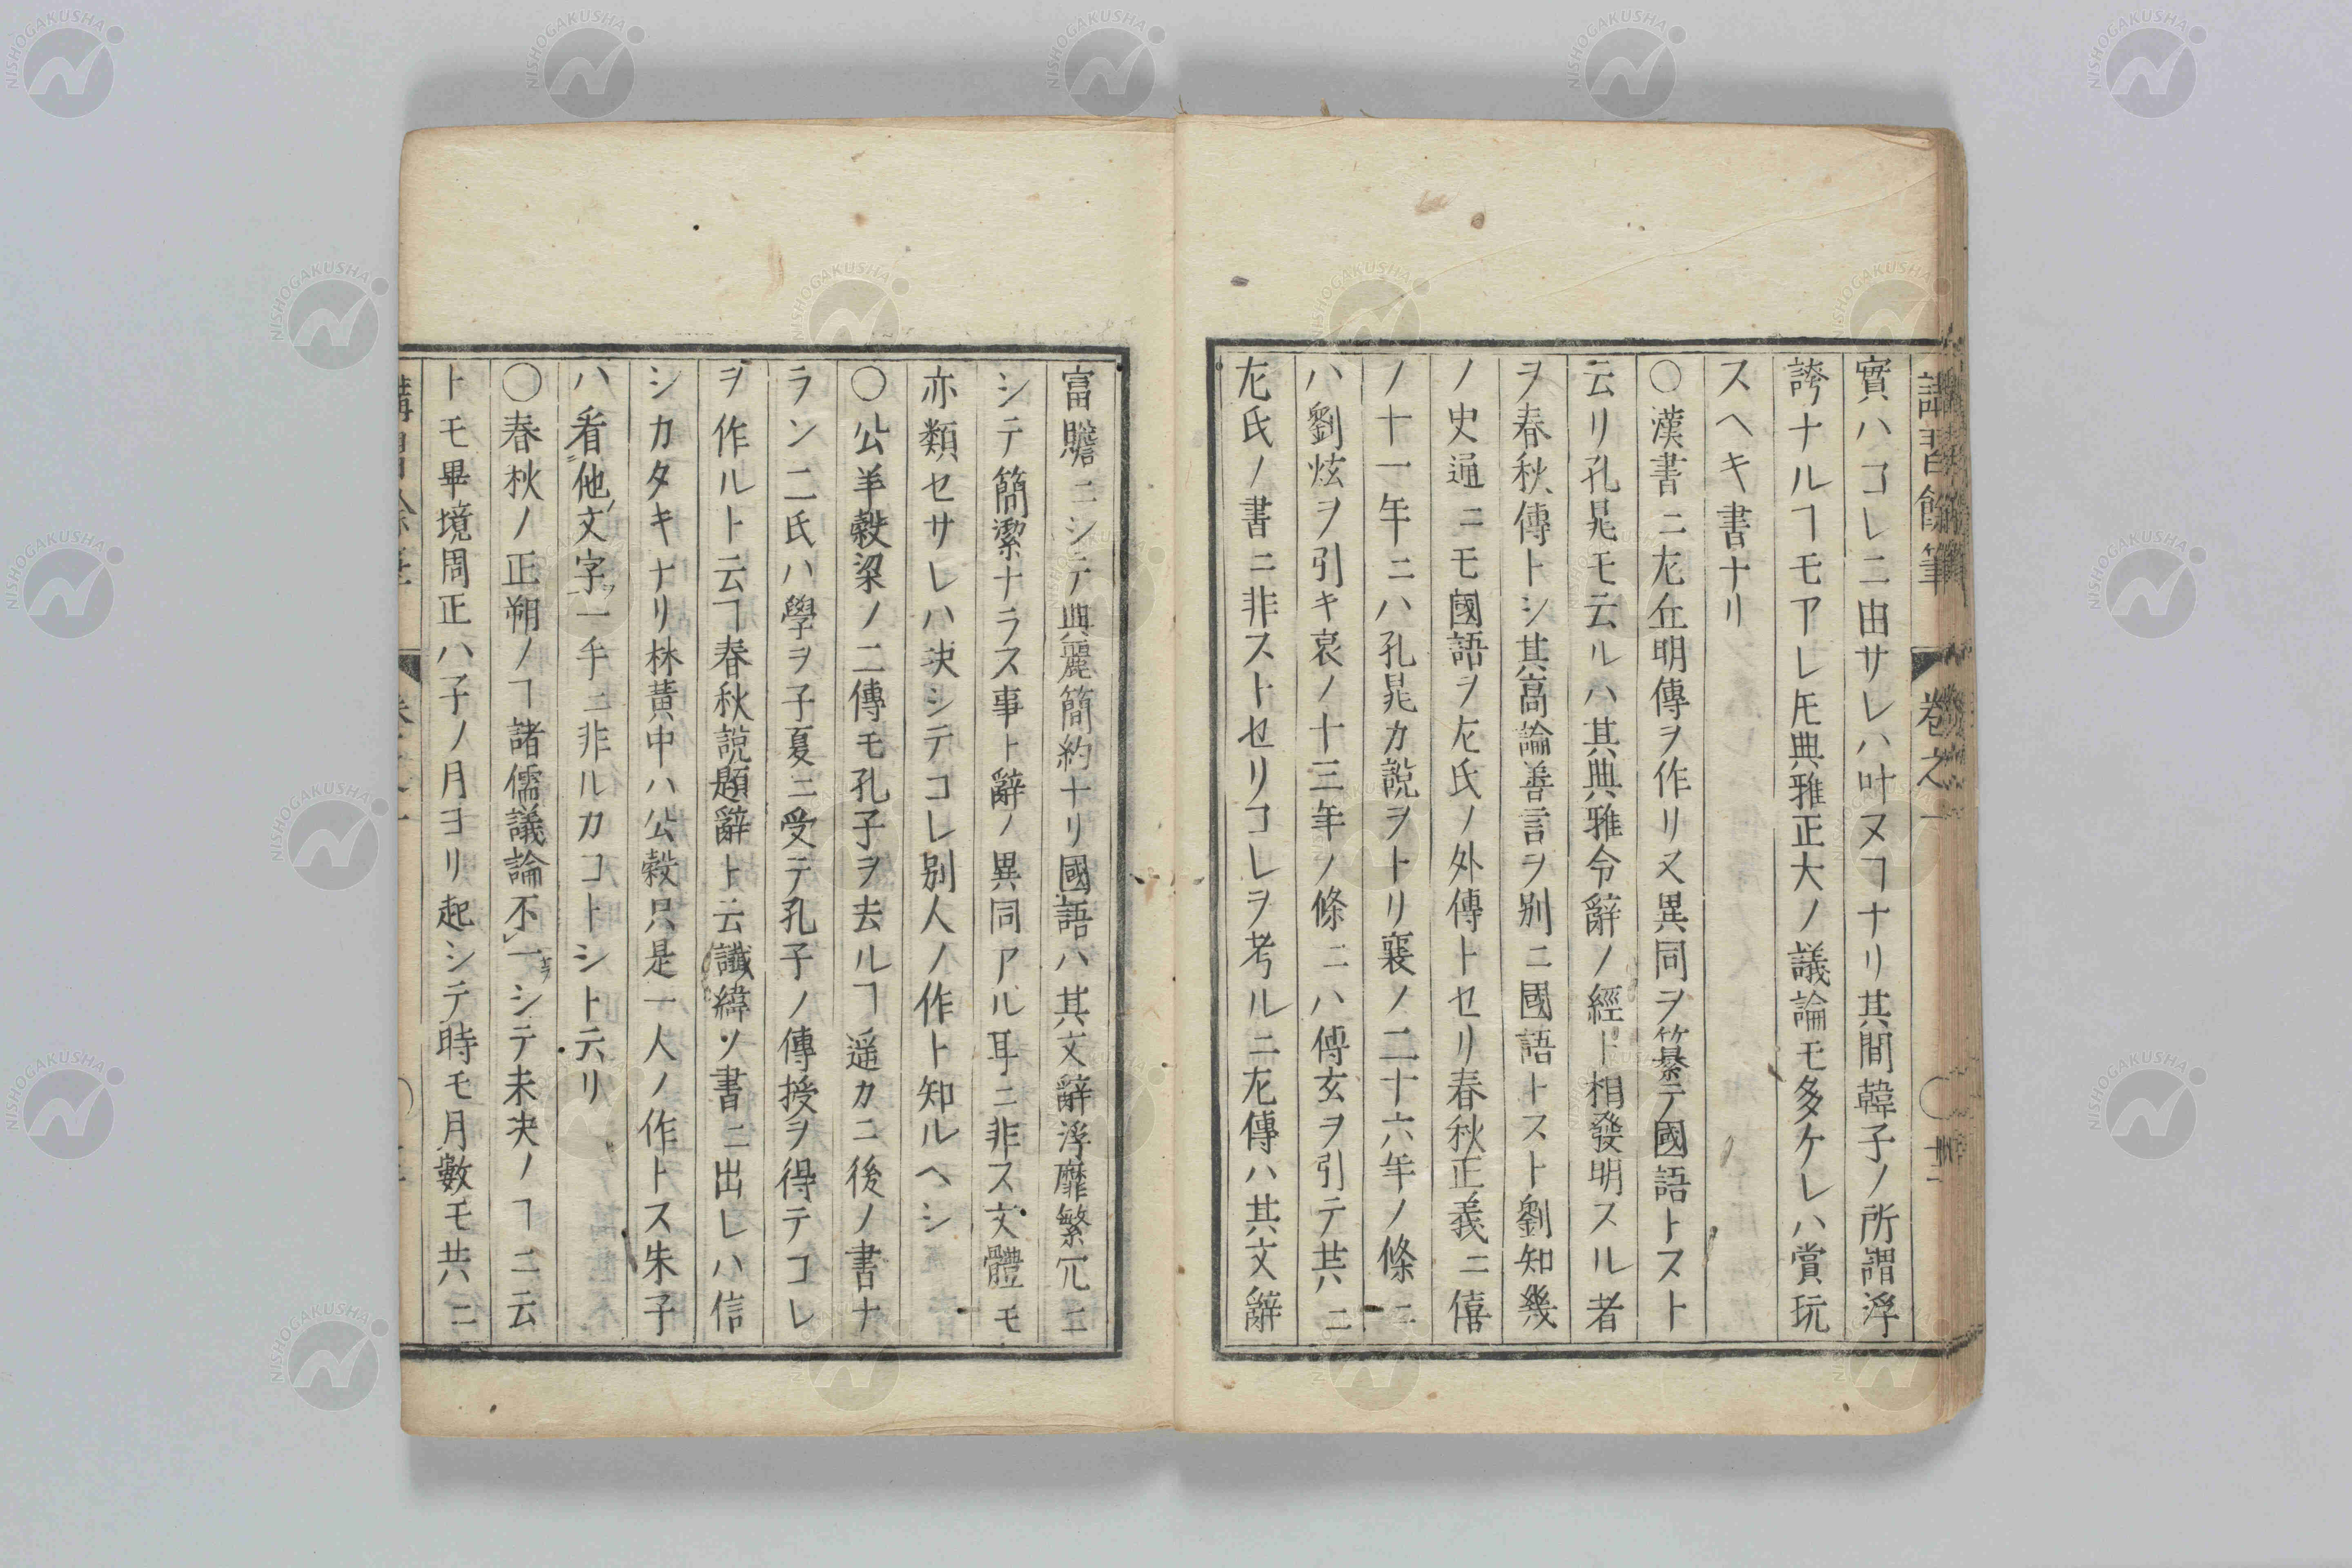 講習餘筆 卷之一 〇 十二
實ハコレニ由サレハ叶ヌヿナリ其間韓子ノ所謂浮
誇ナルヿモアレ𪜈典雅正大ノ議論モ多ケレハ賞玩
スヘキ書ナリ
〇漢書ニ左丘明傳ヲ作リ又異同ヲ纂テ國語トスト
云リ孔晁モ云ルハ其典雅令辭ノ經ト相發明スル者
ヲ春秋傳トシ其高論善言ヲ別ニ國語トスト劉知幾
ノ史通ニモ國語ヲ左氏ノ外傳トセリ春秋正義ニ僖
ノ十一年ニハ孔晁カ說ヲトリ襄ノ二十六年ノ條ニ
ハ劉炫ヲ引キ哀ノ十三年ノ條ニハ傅玄ヲ引テ共ニ
左氏ノ書ニ非ストセリコレヲ考ルニ左傳ハ其文辭
富贍ニシテ典麗簡約ナリ國語ハ其文辭浮靡繁冗ニ
シテ簡潔ナラス事ト辭ノ異同アル耳ニ非ス文體モ
亦類セサレハ決シテコレ別人ノ作ト知ルヘシ
〇公羊穀梁ノ二傳モ孔子ヲ去ルヿ遥カニ後ノ書ナ
ラン二氏ハ學ヲ子夏ニ受テ孔子ノ傳授ヲ得テコレ
ヲ作ルト云ヿ春秋說題辭ト云讖緯ノ書ニ出レハ信
シカタキナリ林黃中ハ公穀只是一人ノ作トス朱子
ハ看他文字一手ニ非ルカコトシト云リ
〇春秋ノ正朔ノヿ諸儒議論不一シテ未決ノヿニ云
トモ畢境周正ハ子ノ月ヨリ起シテ時モ月數モ共ニ